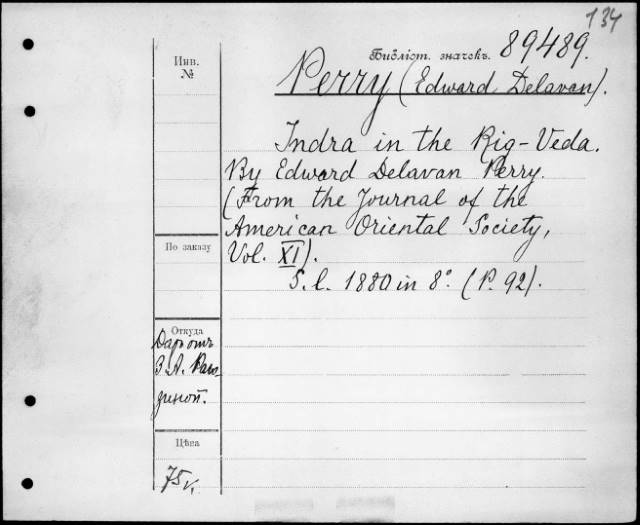 134
Инв.
№
Библіот. значекъ. 89489.
Perry (Edward Delavan).
Indra in the Rig-Veda.
By Edward Delavan Perry.
(From the Journal of the
American Oriental Society,
Vol. XI).
S. l. 1880 in 8°. (P. 92).
По заказу
Откуда
Даръ отъ
З. А. Раго-
зиной.
Цѣна
75 к.